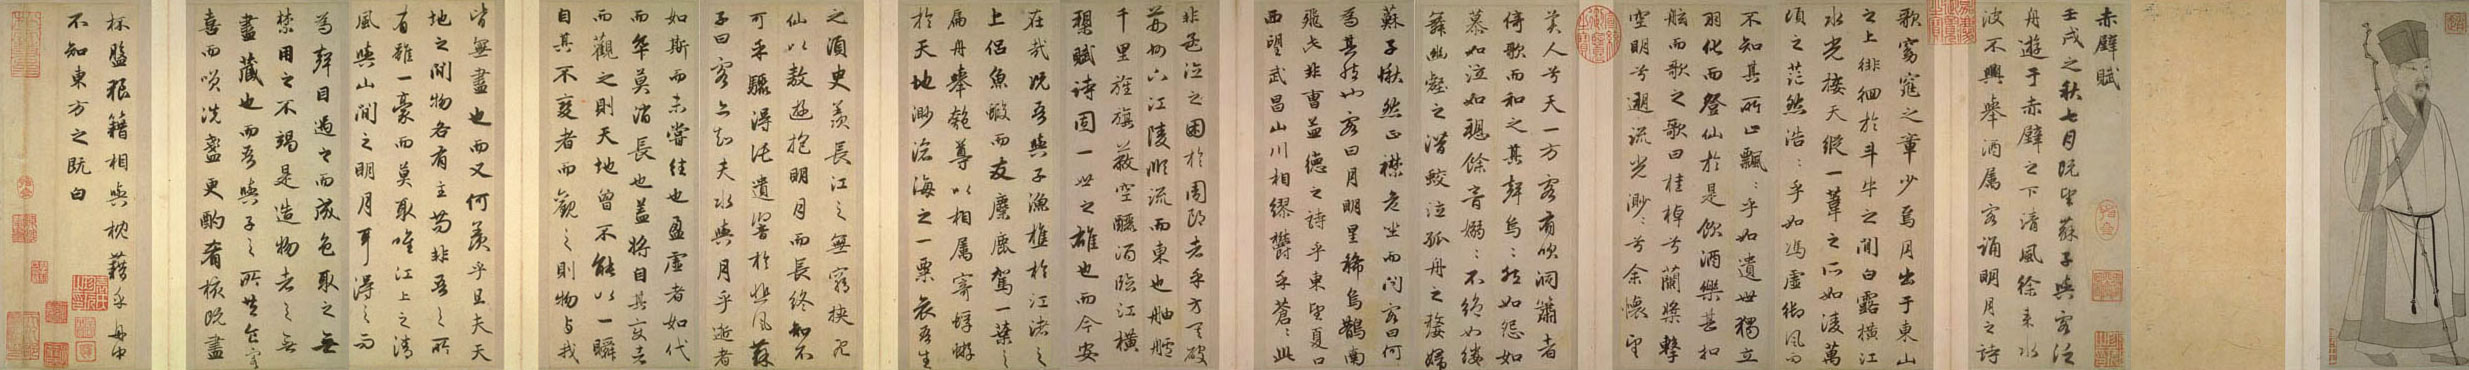 赤壁賦
壬戌之秋七月既望蘇子與客泛
舟遊于赤壁之下清風徐来水
波不興舉酒属客誦明月之詩
歌窈窕之章少焉月出于東山
之上徘徊於斗牛之間白露橫江
水光接天縱一葦之所如淩萬
頃之茫然浩〻乎如馮虛御風而
不知其所止飄〻乎如遺世獨立
羽化而登仙於是飲酒樂甚扣
舷而歌之歌曰桂棹兮蘭槳擊
空明兮遡流光渺〻兮余懷望
美人兮天一方客有吹洞簫者
倚歌而和之其聲烏〻然如怨如
慕如泣如聽餘音嫋〻不絕如縷
舞幽壑之潛蛟泣孤舟之嫠婦
蘇子愀然正襟危坐而問客曰何
為其然也客曰月明星稀烏鵲南
飛此非曹孟德之詩乎東望夏口
西望武昌山川相繆鬱乎蒼〻此
非孟德之困於周郎者乎方其破
荊州下江陵順流而東也舳艫
千里旌旗蔽空釃酒臨江橫
槊賦詩固一世之雄也而今安
在哉況吾與子漁樵於江渚之
上侶魚蝦而友麋鹿駕一葉之
扁舟舉匏尊以相属寄蜉蝣
於天地渺滄海之一粟哀吾生
之須臾羨長江之無窮挾飛
仙以敖遊抱明月而長終知不
可乎驟得託遺響於悲風蘇
子曰客亦知夫水與月乎逝者
如斯而未嘗往也盈虛者如代
而卒莫消長也蓋將自其變者
而觀之則天地曾不能以一瞬
自其不變者而觀之則物与我
皆無盡也而又何羨乎且夫天
地之間物各有主苟非吾之所
有雖一豪而莫取唯江上之清
風與山間之明月耳得之而
為聲目遇之而成色取之無
禁用之不竭是造物者之無
盡藏也而吾與子之所共食客
喜而唉洗盞更酌肴核既盡
杯盤狼籍相與枕藉乎舟中
不知東方之既白